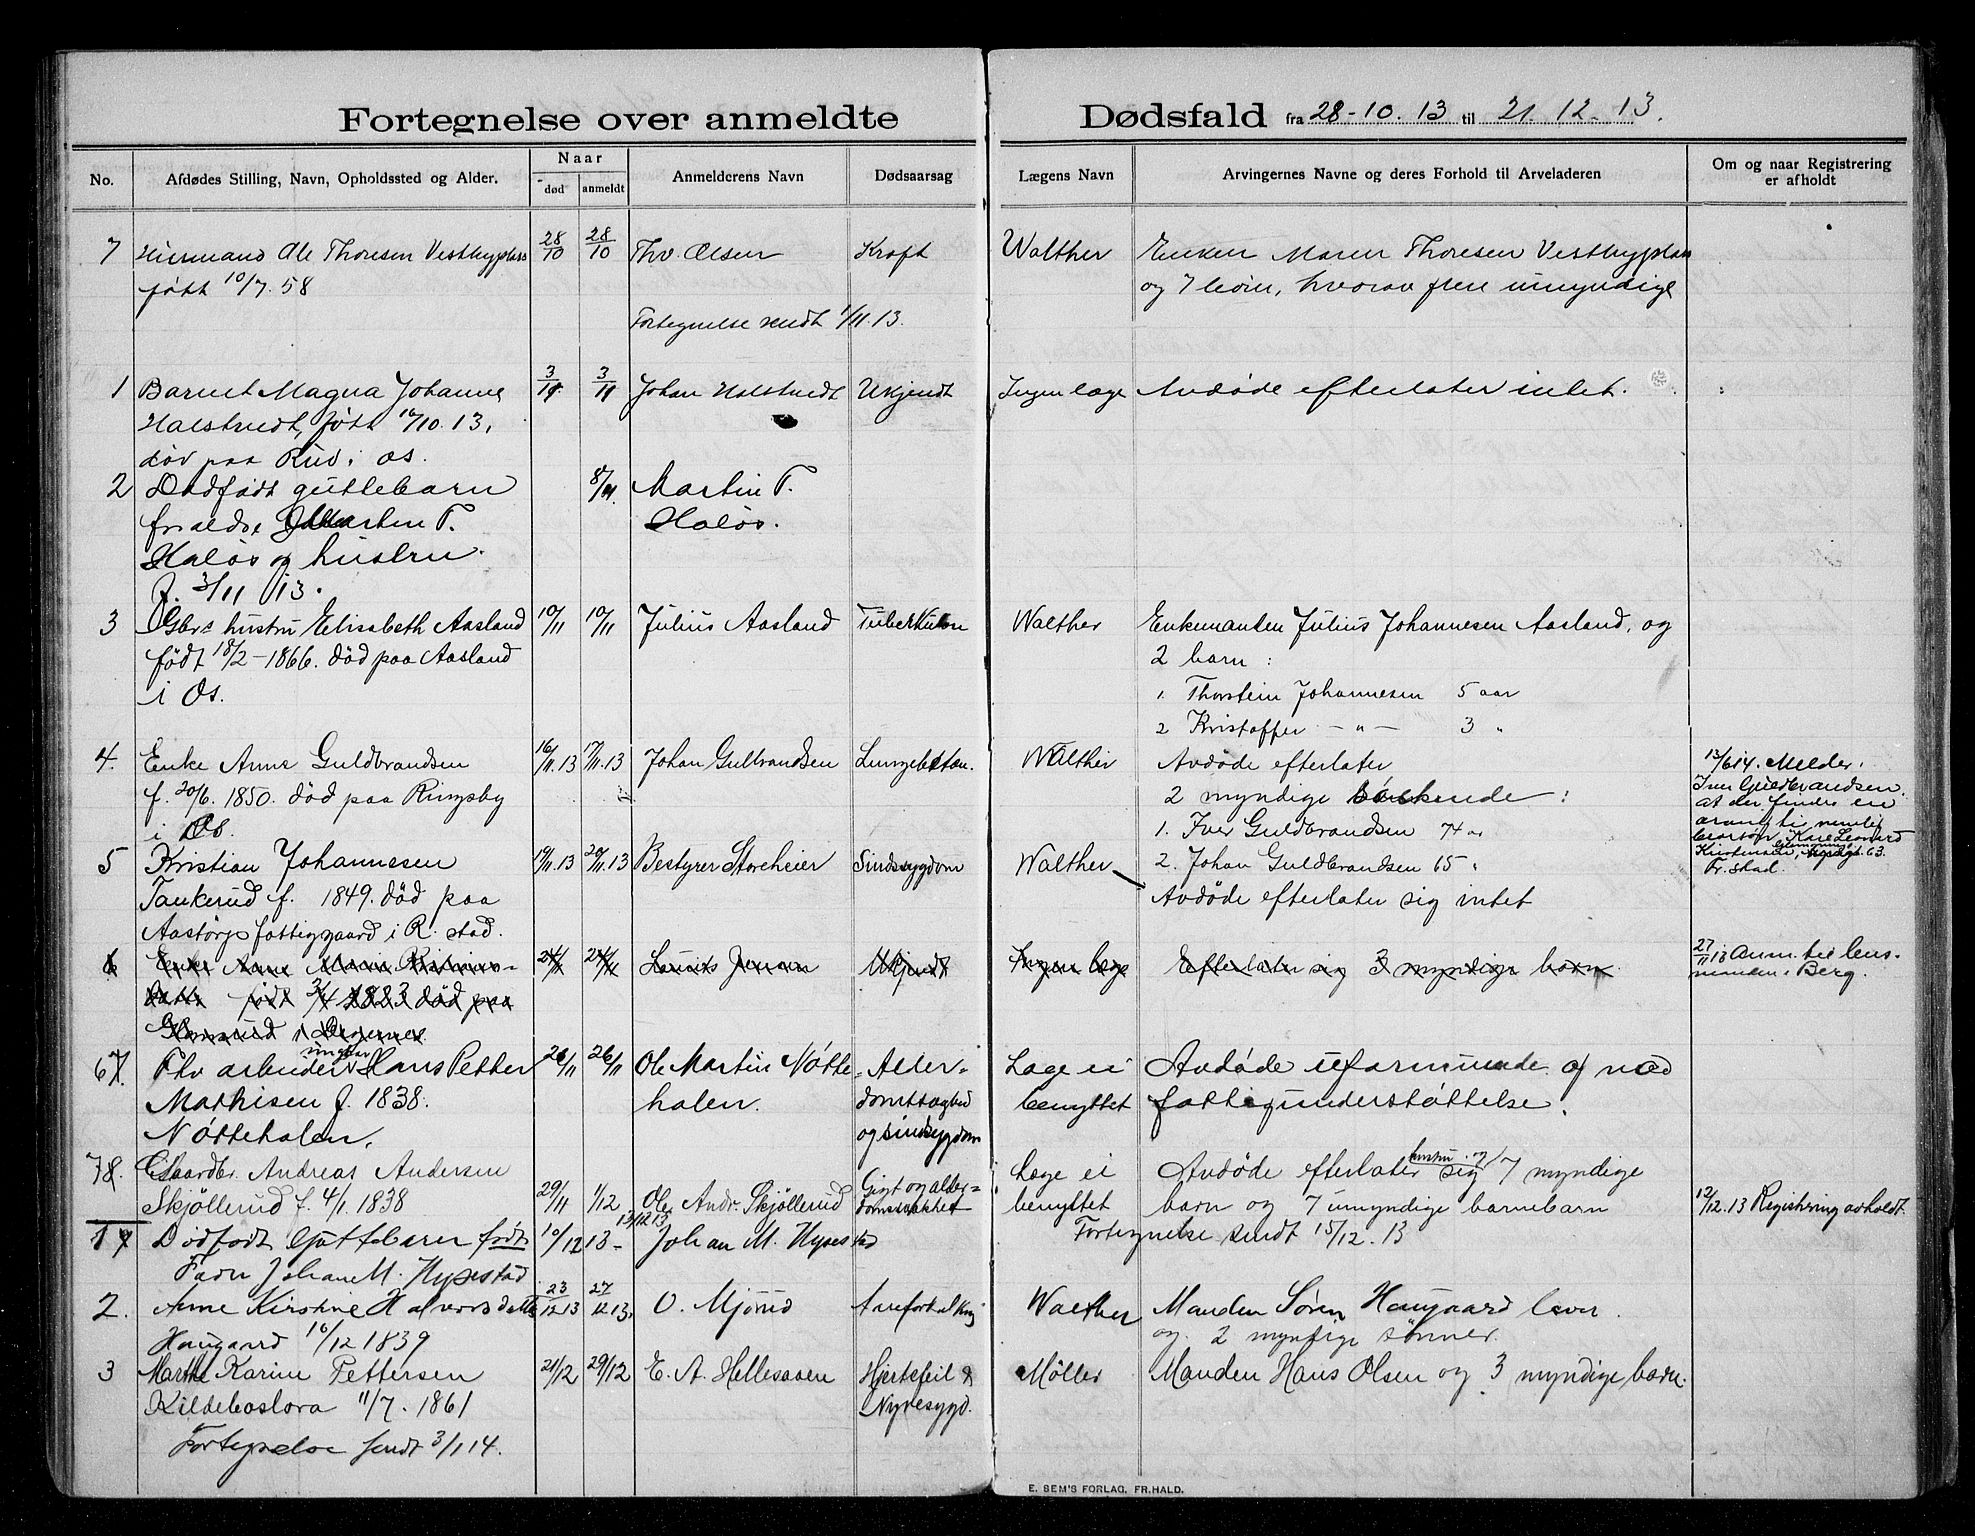 Fortegnelse over anmeldte Dødsfald fra 28-10. 13 til 21. 12. 13.
No. Afdødes Stilling, Navn, Opholdssted og Alder. Naar død anmeldt Anmelderens Navn Dødsaarsag Lægens Navn Arvingernes Navne og deres Forhold til Arveladeren Om og naar Registrering er afholdt
7 Ole Thoresen 28/10 28/10 Thv. Olsen Kræft Walther Enken Maren Thoresen
født 10/7. 58 og 7 børn, hvorav flere umyndige
Fortegnelse sendt 1/11. 13.
1 Barnet Magna Johanne 3/11 3/11 Johan Ukjendt Ingen læge Avdøde efterlater intet.
født /10. 13,
død paa Rud i Os.
2 Dødfødt guttebarn 8/11 Martin T.
forældre Martin T. Haløs.
Haløs og hustru.
f. 3/11 13.
3 Gbrs hustru Elisabeth Aasland 10/11 10/11 Julius Aasland Tuberkulose Walther Enkemanden Julius Johannesen Aasland, og
født 18/2-1866. død paa Aasland 2 barn:
i Os. 1. Thorstein Johannesen 5 aar
2 Kristoffer - " - 3 "
4. Enke Anne Guldbrandsen 16/11. 13 17/11. 13 Johan Gulbrandsen Walther Avdøde efterlater 13/6 14. Melder
f. 20/6. 1850. død paa Ringsby 2 myndige søskende: Iver Guldbrandsen
i Os. 1. Iver Guldbrandsen 74 at der findes en
arving til nemlig
5 Kristian Johannesen 19/11. 13 20/11. 13 Bestyrer Storeheier Sindssygdom Walther 2. Johan Guldbrandsen 65 "
Tankerud f. 1849. død paa Avdøde efterlater sig intet Fr.stad.
Aastorp fattiggaard i R. stad.
6 Enke Anne Marie 24/11 24/11 Ukjendt Ingen læge Efterlater sig 3 myndige børn 27/11 13 Anm. til lens-
født 3/4 1823 død paa manden i Berg.
67. Fhv arbeider ungkar Hans Petter 26/11 26/11 Ole Martin Nøtte- Alder- Læge ei Avdøde uformuende og nød
Mathisen f. 1838. halen. domssvaghed benyttet fattigunderstøttelse.
Nøttehalen. og sindsygdom
78. Gaardbr. Andreas Andersen Læge ei Avdøde efterlater hustru og sig 7 myndige
Skjøllerud f. 4/1. 1838 29/11 1/12 Ole Andr. Skjøllerud Gigt og alder- domssvakhet benyttet barn og 7 umyndige barnebarn 12/12. 13 Registrering avholdt.
Fortegnelse sendt 15/12. 13
1 Dødfødt Guttebarn født 10/12 13/12 13 Johan M. Hypestad
Fader Johan M. Hypestad
2. Anne Kirstine Halvorsdatter 23/12 13 27/12 13. O. Mjørud Aareforkalkning Walther Manden Søren Haugaard lever
Haugaard 10/12 1839 og 2 myndige sønner.
3 Marthe Karine Pettersen 21/12 29/12 E. A. Hellesaaen Hjertefeil & Møller Manden Hans Olsen og 3 myndige barn.
Kildebaslora 11/7. 1861 Nyresygd.
Fortegnelse sendt 3/1 14.
E. SEM'S FORLAG, FR.HALD.